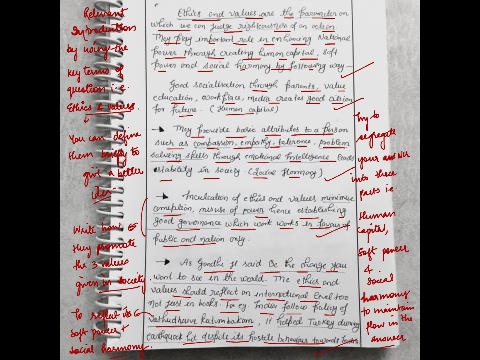 Ethics and values are the parameter on
which we can judge righteousness of an action
They play important role in enhancing National
power through creating human capital, soft
power and social harmony by following way -
Good socialisation through parents, value
education, workplace, media creates good citizen
for future. (Human capital)
→ They provide basic attributes to a Person
such as compassion, empathy, tolerance, problem
solving skills through emotional Intelligence leads
stability in society (Social Harmony)
→ Inculcation of ethics and values minimise
corruption, misuse of power hence establishing
good governance which work works in favour of
public and nation only.
→ As Gandhi JI said Be the change you
want to see in the world. The ethics and
values should reflect on international level too
not just in books. for eg. Indias follow policy of
Vashudhaiva Kutumbakam, It helped Turkey during
earthquake despite its hostile behaviour towards
Relevant
Introduction
by using the
key terms of
question i.e.
Ethics & values.
You can define
them briefly to
give a better
idea
Write how
they promote
the 3 values
given in society
To reflect its
Soft power &
social harmony
Try to
segregate
your answer
into three
parts i.e
Human
Capital,
Soft power
&
social
harmony
to maintain
flow in the
answer